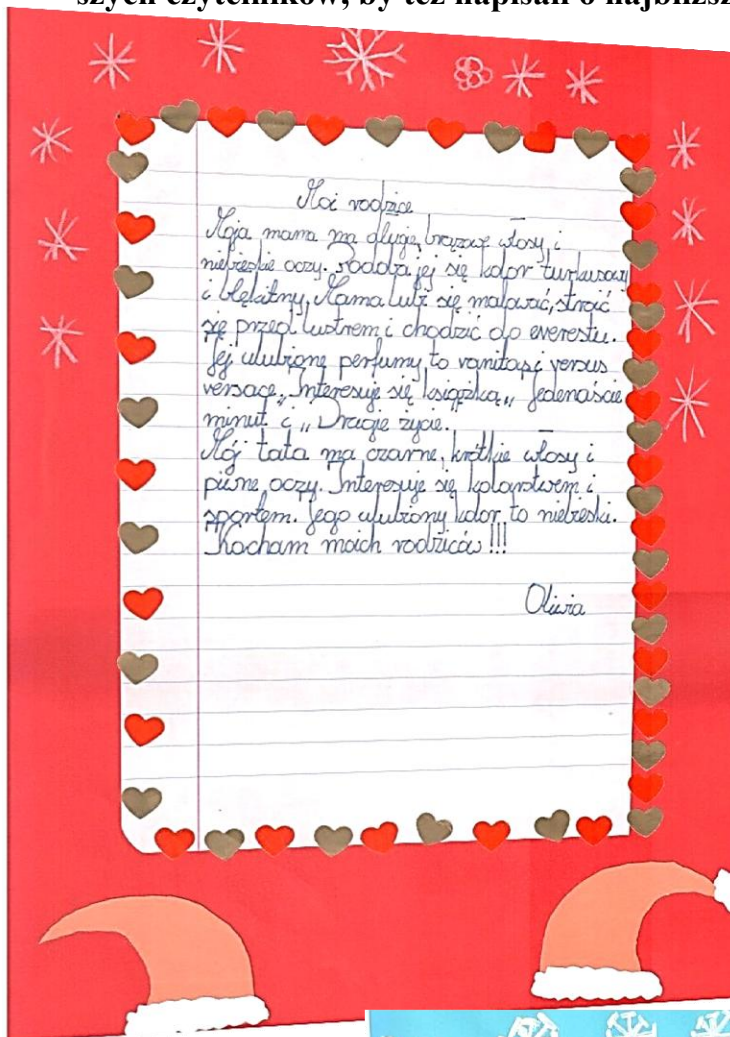 szych czytelników, by też napisali o najbliższ
Moi rodzice
Moja mama ma długie, brązowe włosy i
niebieskie oczy. Podoba jej się kolor turkusowy
i błękitny. Mama lubi się malować, stroić
się przed lustrem i chodzić do everestu.
Jej ulubione perfumy to vanitas i versus
versace. Interesuje się książką „ Jedenaście
minut i „ Drugie życie.
Mój tata ma czarne, krótkie włosy i
piwne oczy. Interesuje się kolarstwem i
sportem. Jego ulubiony kolor to niebieski.
Kocham moich rodziców !!!
Oliwia